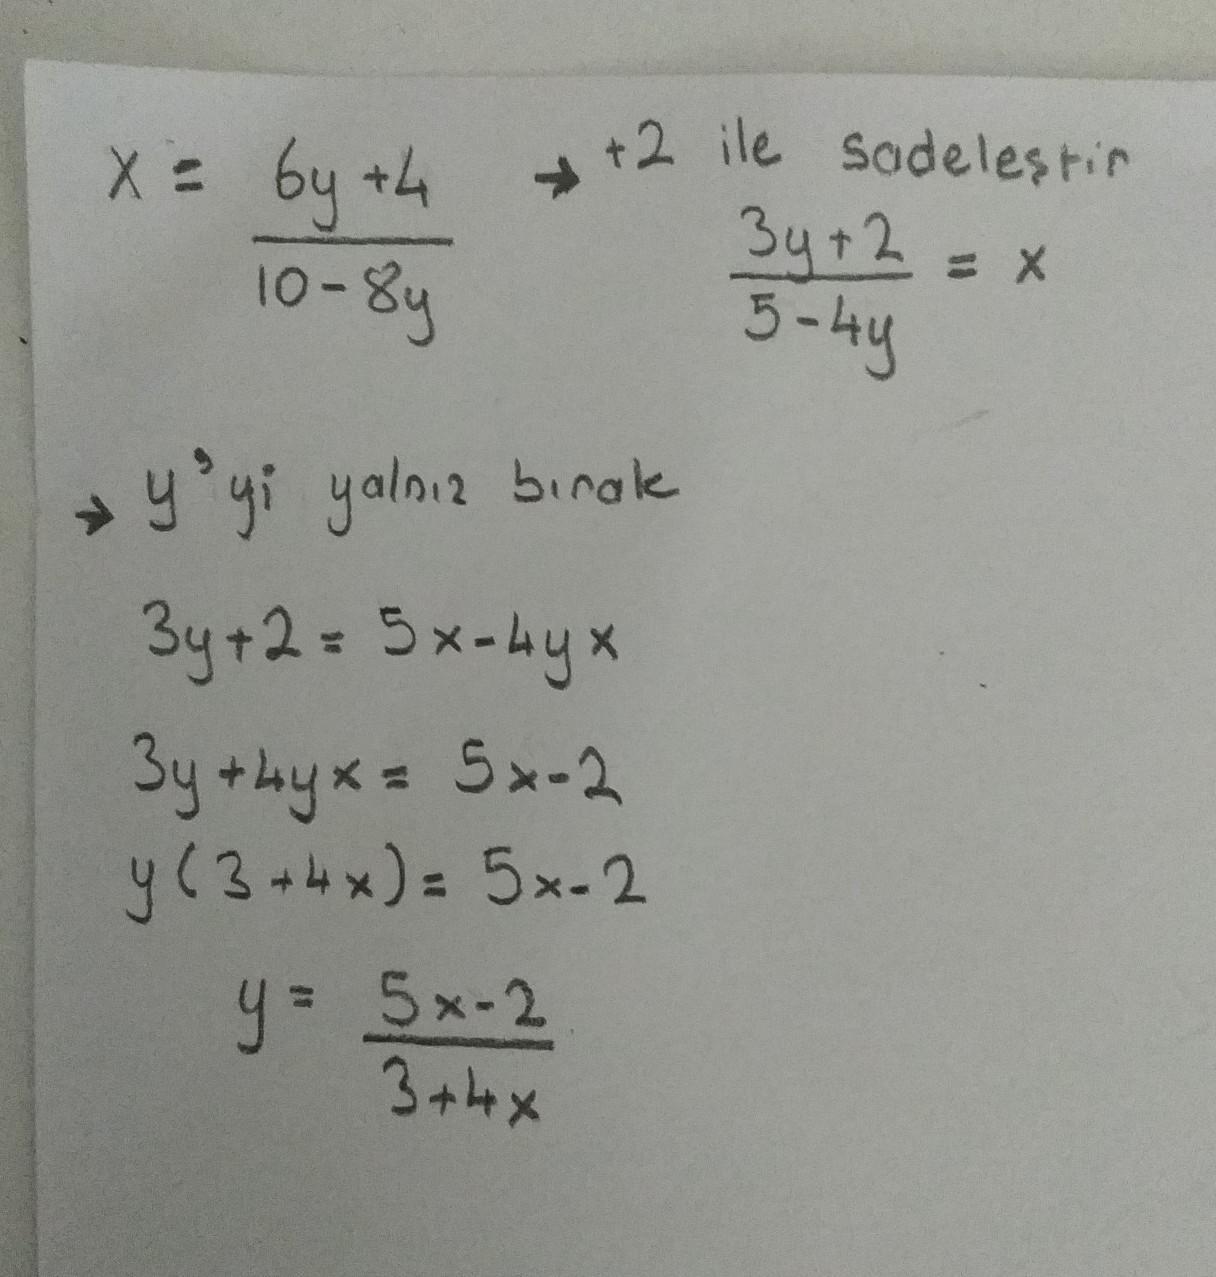 x = 6y+4 / 10-8y → +2 ile sadeleştir
3y+2 / 5-4y = x
→ y'yi yalnız bırak
3y+2 = 5x-4yx
3y+4yx = 5x-2
y(3+4x) = 5x-2
y = 5x-2 / 3+4x